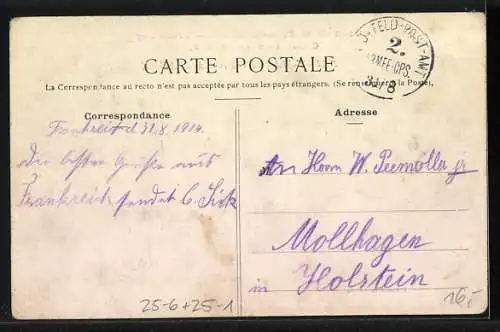 K.D. FELD-POST-AMT
2.
ARMEE-CPS.
31/8
CARTE POSTALE
La Correspondance au recto n'est pas acceptée par tous les pays étrangers. (Se renseigner à la Poste).
Correspondance
Adresse
Frankreich d 31.8.1914.
Die besten Grüße aus
Frankreich sendet C. Sick
An Herrn W. Peemöller jr
Mollhagen
in Holstein
25-6+25-1
16,-